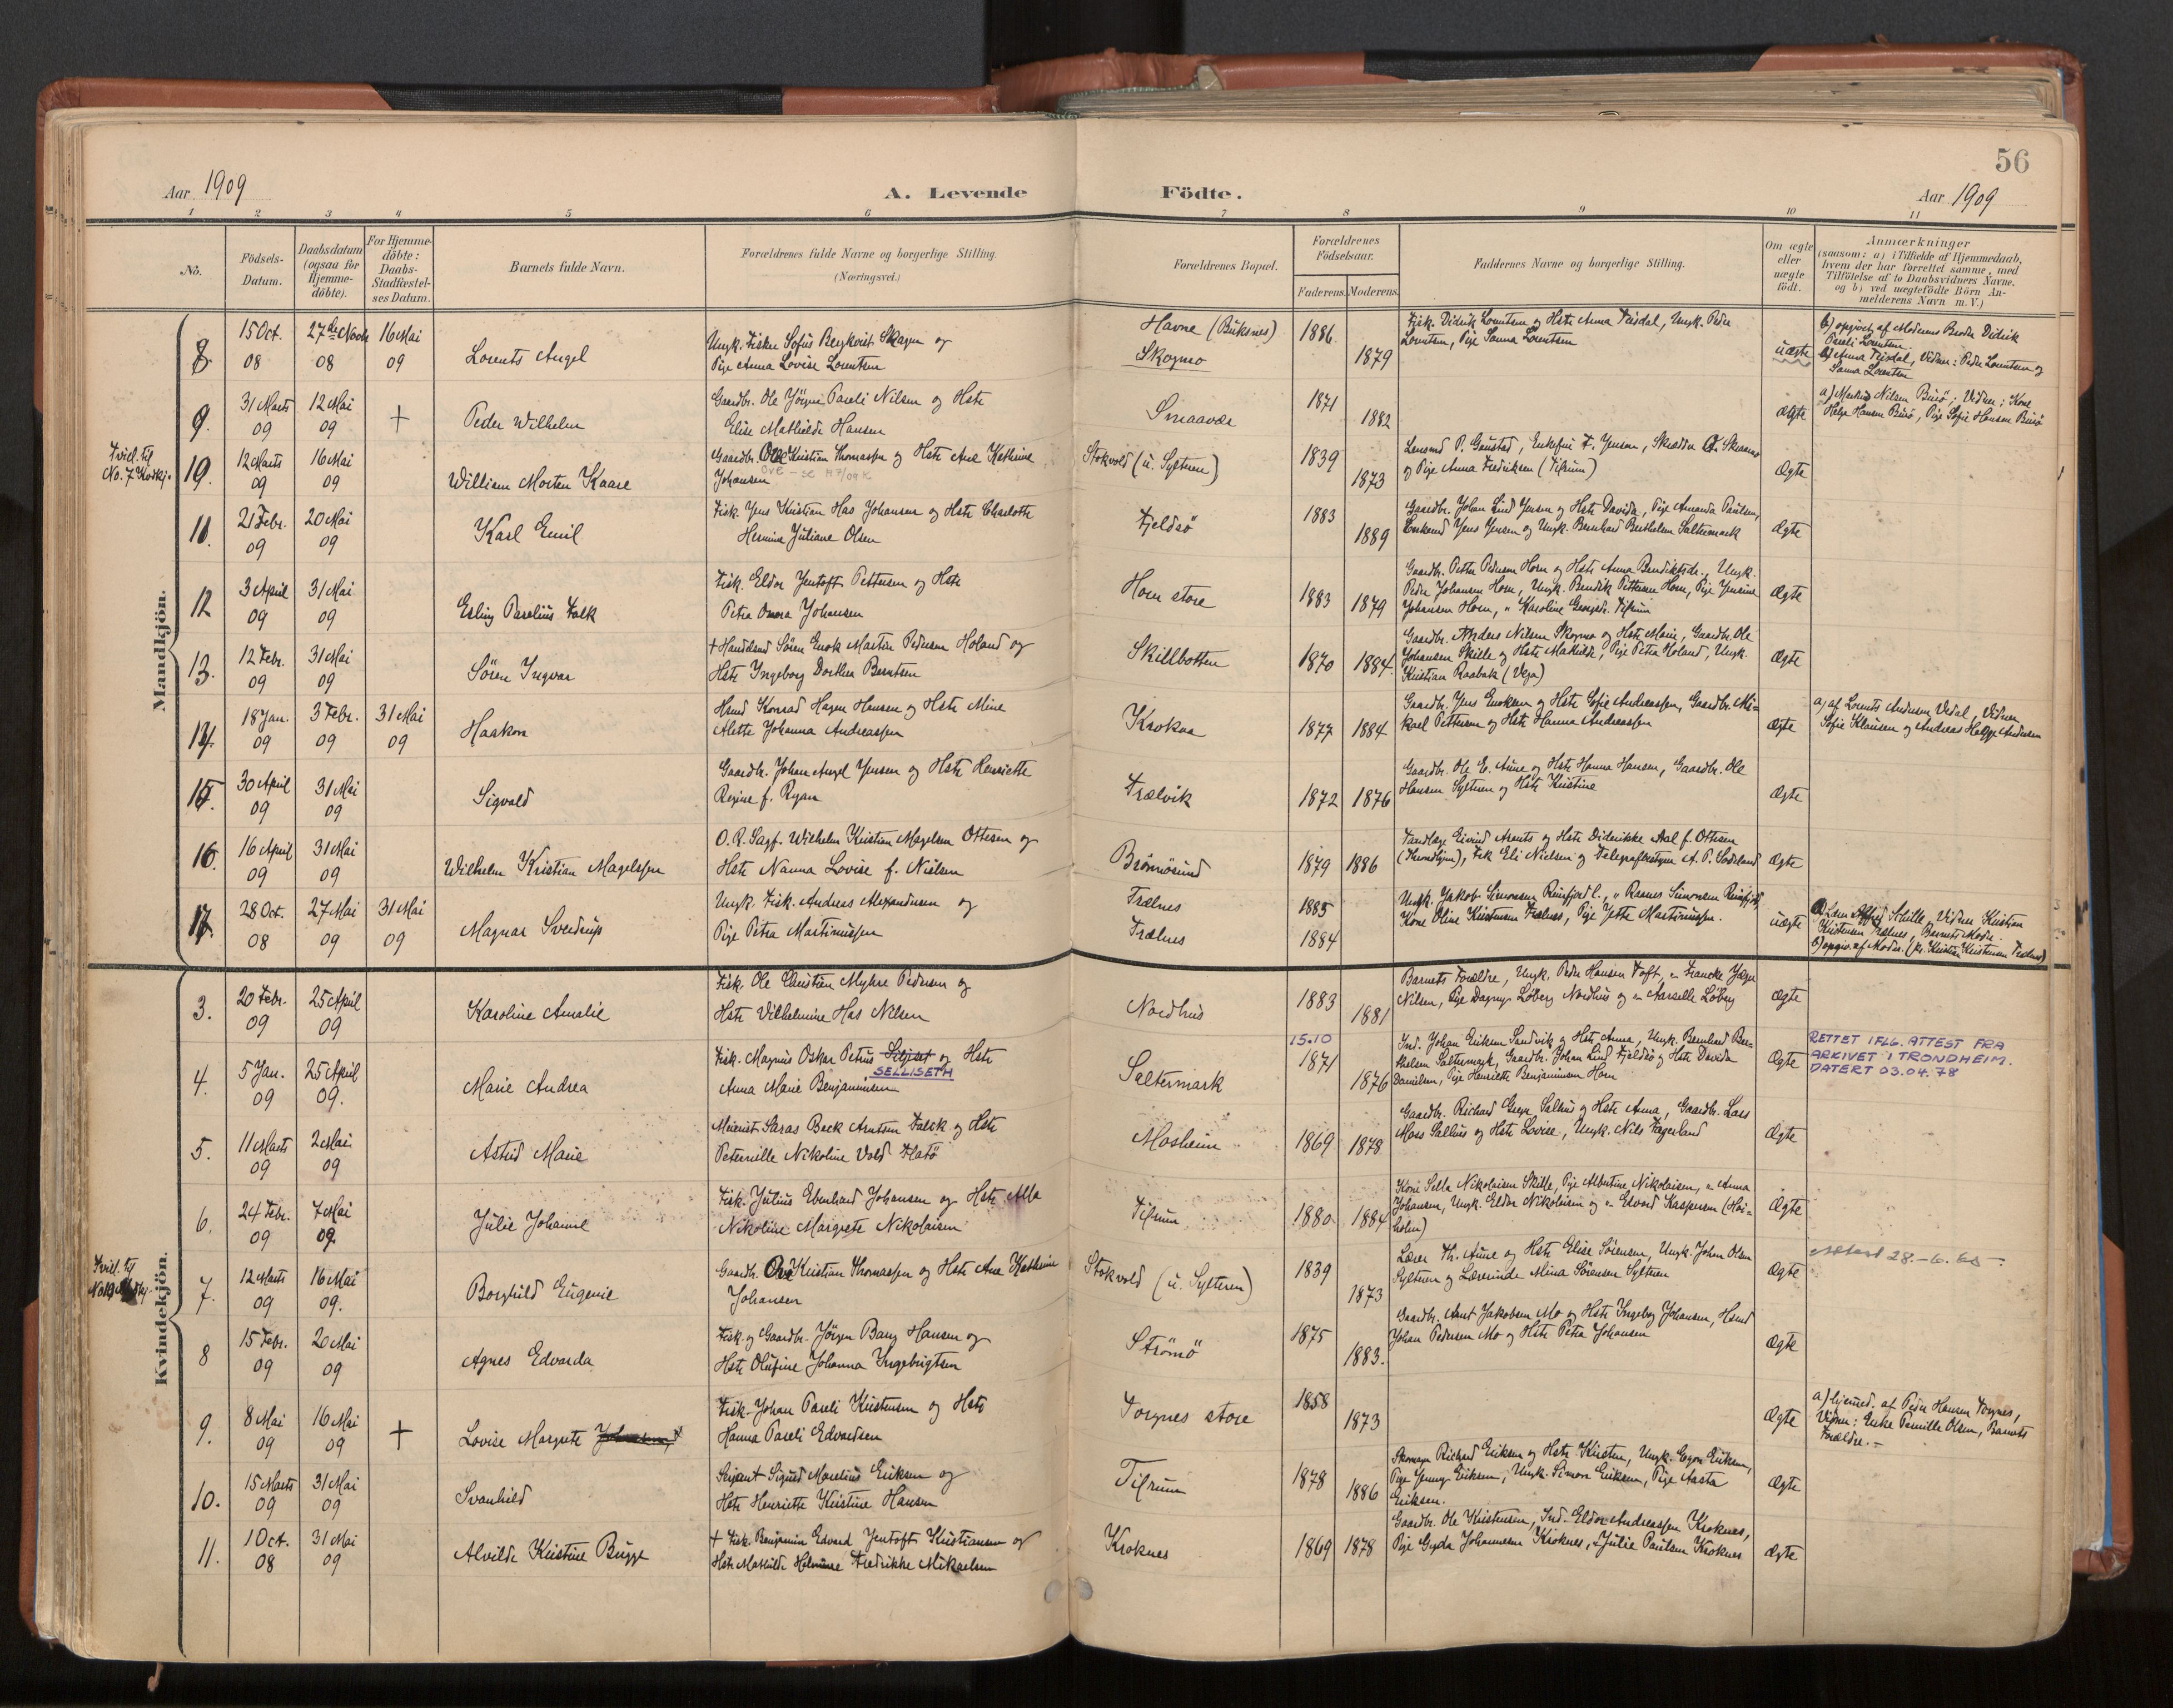 56
Aar 1909
A. Levende Födte.
Aar 1909
1 2 3 4 5 6 7 8 9 10 11
No.
Födsels-Datum.
Daabsdatum (ogsaa for Hjemme-döbte).
For Hjemme-döbte: Daabs-Stadfæstel-ses Datum.
Barnets fulde Navn.
Forældrenes fulde Navne og borgerlige Stilling.
(Næringsvei.)
Forældrenes Bopæl.
Forældrenes Födselsaar.
Faderens. Moderens.
Faddernes Navne og borgerlige Stilling.
Om ægte eller uægte födt.
Anmærkninger
(saasom: a) i Tilfælde af Hjemmedaab,
hvem der har forrettet samme, med
Tilföielse af to Daabsvidners Navne.
og b) ved uægtefödte Börn An-
melderens Navn m. V.)
Mandkjön.
8. 15 Oct. 08 27de Novbr 08 16 Mai 09
Lorents Angel
Ungk. Fisker Sofus Bergkvist Skagen og
Pige Anna Lovise Lorentsen
Havne (Buksnes)
Skogmo
1886 1879
Fisk. Didrik Lorentsen og Hstr Anna Teisdal, Ungk. Peder
Lorentsen, Pige Sanna Lorentsen
uægte
b) opgivet af Moderens Broder Didrik
Pareli Lorentsen
a) Anna Teisdal, Vidner: Peder Lorentsen og
Sanna Lorentsen
9. 31 Marts 09 12 Mai 09 +
Peder Wilhelm
Gaardbr. Ole Jörgen Pareli Nilsen og Hstr
Elise Mathilde Hansen
Smaavær
1871 1882
Ægte
a) Nilsen Burö; Vidner: Kone
Helga Hansen Burö, Pige Sofie Hansen Burö
Tvil. til
No. 7 Kvkj.
10. 12 Marts 09 16 Mai 09
William Morten Kaare
Gaardbr. Ole Kristian Thomassen og Hstr Ane Kathrine
Johansen OVE - SE A 7/09 K
Stokvold (u. Sylteren)
1839 1873
Lensmd P. Gaustad, Enkefru F. Jensen,
og Pige Anna Fredriksen (Tilrum)
Ægte
11. 21 Febr. 09 20 Mai 09
Karl Emil
Fisk. Jens Kristian Has Johansen og Hstr Charlotte
Hermine Juliane Olsen
Fjeldsö
1883 1889
Gaardbr. Johan Lind Jensen og Hstr Davida, Pige Amanda Paulsen,
Enkemd Jens Jensen og Ungk. Bernhard Berthelsen Saltermark
Ægte
12 3 April 09 31 Mai 09
Erling Parelius Falk
Fisk. Eldor Jentoft Pettersen og Hstr
Petra Omora Johansen
Horn store
1883 1879
Gaardbr. Petter Pedersen Horn og Hstr Anna Bendiktsdr., Ungk.
Peder Johansen Horn, Ungk. Bendik Pettersen Horn, Pige Jensine
Johansen Horn, " Karoline Georgsdr. Tilrum
Ægte
13. 12 Febr. 09 31 Mai 09
Sören Ingvar
+ Handelsmd Sören Enok Martin Pedersen Holand og
Hstr Ingeborg Dorthea Berntsen
Skillbotten
1870 1884
Gaardbr. Anders Nilsen Skogmo og Hstr Marie, Gaardbr. Ole
Johansen Skille og Hstr Mathilde, Pige Petra Holand, Ungk.
Kristian Raabak (Vega)
Ægte
14. 18 Jan. 09 3 Febr. 09 31 Mai 09
Haakon
Hsmd Konrad Hagen Hansen og Hstr Mine
Alette Johanna Andreassen
Krokaa
1877 1884
Gaardbr. Jens Enoksen og Hstr Sofie Andreassen, Gaardbr. Mi-
kael Pettersen og Hstr Hanna Andreassen
Ægte
a) af Lorents Andersen Vedal, Vidner
Sofie Klausen og Andreas Helgge Andersen
15. 30 April 09 31 Mai 09
Sigvald
Gaardbr. Johan Angel Jensen og Hstr Henriette
Regine f. Ryan
Trælvik
1872 1876
Gaardbr. Ole E. Aune og Hstr Hanna Hansen, Gaardbr. Ole
Hansen Sylteren og Hstr Kristine
Ægte
16. 16 April 09 31 Mai 09
Wilhelm Kristian Magelssen
O. R. Sagf. Wilhelm Kristian Magelssen Ottesen og
Hstr Nanna Lovise f. Nielsen
Brönnösund
1879 1886
Tandlæge Eivind Arents og Hstr Diderikke Aal f. Ottesen
(Throndhjem), Frk Eli Nielsen og Telegrafbestyrer A. P. Sødeland
Ægte
17. 28 Oct. 08 27 Mai 09 31 Mai 09
Magnar Sverdrup
Ungk. Fisk. Andreas Alexandersen og
Pige Petra Martinussen
Trælnes
Trælnes
1885
1884
Ungk. Jakob Simonsen Reinfjord l., " Rasmus Simonsen Reinfjord,
Kone Oline Kristensen Trælnes, Pige Jette Martinussen.
uægte
a) Læreren Skille, Vidner Kristian
Kristensen Trælnes, Barnets Moder.
b) opgiv. af Moder. (pr. Kristian Kristensen Trælnes)
Kvindekjön.
3. 20 Febr. 09 25 April 09
Karoline Amalie
Fisk. Ole Christian Myhre Pedersen og
Hstr Vilhelmine Has Nilsen
Nordhus
1883 1881
Barnets Forældre, Ungk. Peder Hansen Toft, " Francke Jæger
Nilsen, Pige Dagny Löberg Nordhus og " Aarselle Löberg
Ægte
4. 5 Jan. 09 25 April 09.
Marie Andrea
Fisk. Magnus Oskar Petrus Siljeset og Hstr
SELLISETH
Anna Marie Benjaminsen
Saltermark
15.10
1871 1876
Ind. Johan Eriksen Sandvik og Hstr Anna, Ungk. Bernhard Ber-
thelsen Saltermark, Gaardbr. Johan Lind Fjeldsö og Hstr Davida
Danielsen, Pige Henriette Benjaminsen Horn
Ægte
RETTET IFLG. ATTEST FRA
ARKIVET I TRONDHEIM.
DATERT 03.04.78
5. 11 Marts 09 2 Mai 09
Astrid Marie
Meierist Saras Beck Arntsen Falck og Hstr
Peternille Nikoline Vold Flatö
Mosheim
1869 1878
Gaardbr. Richard Greger Salhus og Hstr Anna, Gaardbr. Lars
Moss Salhus og Hstr Lovise, Ungk. Nils Fagerland
Ægte
6. 24 Febr. 09 7 Mai 09.
Julie Johanne
Fisk. Julius Eberhard Johansen og Hstr Alba
Nikoline Margrete Nikolaisen
Tilrum
1880 1884
Kone Sella Nikolaisen Skille, Pige Albertine Nikolaisen, " Anna
Johansen, Ungk. Eldor Nikolaisen og " Edvard Kaspersen (Hei-
holm)
Ægte
Tvil. til
7. 12 Marts 09 16 Mai 09.
Borghild Eugenie
Gaardb. Ove Kristian Thomassen og Hstr Ane Kathrine
Johansen
Stokvold (u. Sylteren)
1839 1873
Lærer Th. Aune og Hstr Elise Sörensen, Ungk. Johan Olsen
Sylteren og Lærerinde Mina Sörensen Sylteren
Ægte
Attest 28.-6. 60
8 15 Febr. 09 20 Mai 09
Agnes Edvarda
Fisk. og Gaardbr. Jörgen Bang Hansen og
Hstr Olufine Johanna Ingebrigtsen
Strömö
1875 1883.
Gaardbr. Arnt Jakobsen Mo og Hstr Ingeborg Johansen, Hsmd
Johan Pedersen Mo og Hstr Petra Johansen
Ægte
9. 8 Mai 09 16 Mai 09 +
Lovise Margrete
Fisk. Johan Pareli Kristensen og Hstr
Hanna Pareli Edvardsen
Torgnes store
1858 1873
Ægte
a) hjemmed. af Peder Hansen Torgnes,
Vidner: Enke Pernille Olsen, Barnets
Forældre.-
10. 15 Marts 09 31 Mai 09
Svanhild
Serjant Sigurd Marelius Eriksen og
Hstr Henriette Kristine Hansen
Tilrum
1878 1886
Richard Eriksen og Hstr Kirsten, Ungk. Egon Eriksen,
Pige Jenny Eriksen, Ungk. Simon Eriksen, Pige Aasta
Eriksen.
Ægte
11. 1 Oct. 08 31 Mai 09
Alvilde Kristine Bugge
+ Fisk. Benjamin Edvard Jentoft Kristiansen og
Hstr Mathilde Helmine Fredrikke Mikaelsen
Kroknes
1869 1878
Gaardbr. Ole Kristensen, Ind. Eldor Andreassen Kroknes,
Pige Gyda Johannesen Kroknes, " Julie Paulsen Kroknes
Ægte